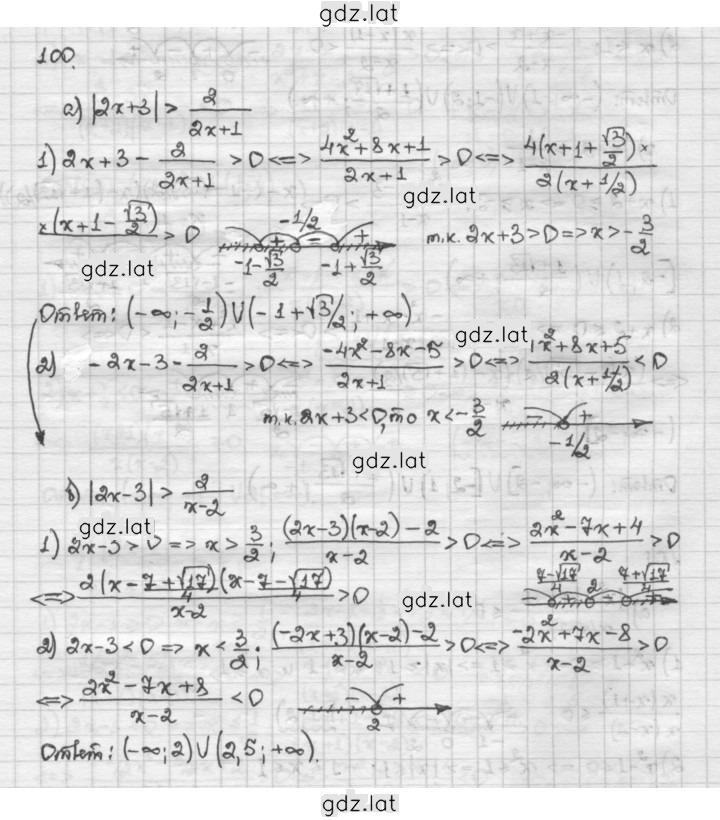 gdz.lat
100.
а) |2x+3| > 2/(2x+1)
1) 2x+3 - 2/(2x+1) > 0 <=> (4x²+8x+1)/(2x+1) > 0 <=> 4(x+1+√3/2) × / 2(x+1/2)
× (x+1-√3/2) > 0 -1-√3/2 + -1/2 - -1+√3/2 + т.к. 2x+3>0 => x>-3/2
gdz.lat
gdz.lat
Ответ: (-∞; -1/2) ∪ (-1+√3/2; +∞)
gdz.lat
2) -2x-3 - 2/(2x+1) > 0 <=> (-4x²-8x-5)/(2x+1) > 0 <=> (4x²+8x+5)/2(x+1/2) < 0
т.к. 2x+3<0, то x<-3/2 - -1/2 +
gdz.lat
б) |2x-3| > 2/(x-2)
gdz.lat
1) 2x-3>0 => x>3/2; ((2x-3)(x-2)-2)/(x-2) > 0 <=> (2x²-7x+4)/(x-2) > 0
<=> 2(x - 7+√17/4)(x - 7-√17/4)/(x-2) > 0 7-√17/4 2 7+√17/4
gdz.lat
2) 2x-3<0 => x<3/2; ((-2x+3)(x-2)-2)/(x-2) > 0 <=> (-2x²+7x-8)/(x-2) > 0
<=> (2x²-7x+8)/(x-2) < 0 - 2 +
Ответ: (-∞; 2) ∪ (2,5; +∞).
gdz.lat